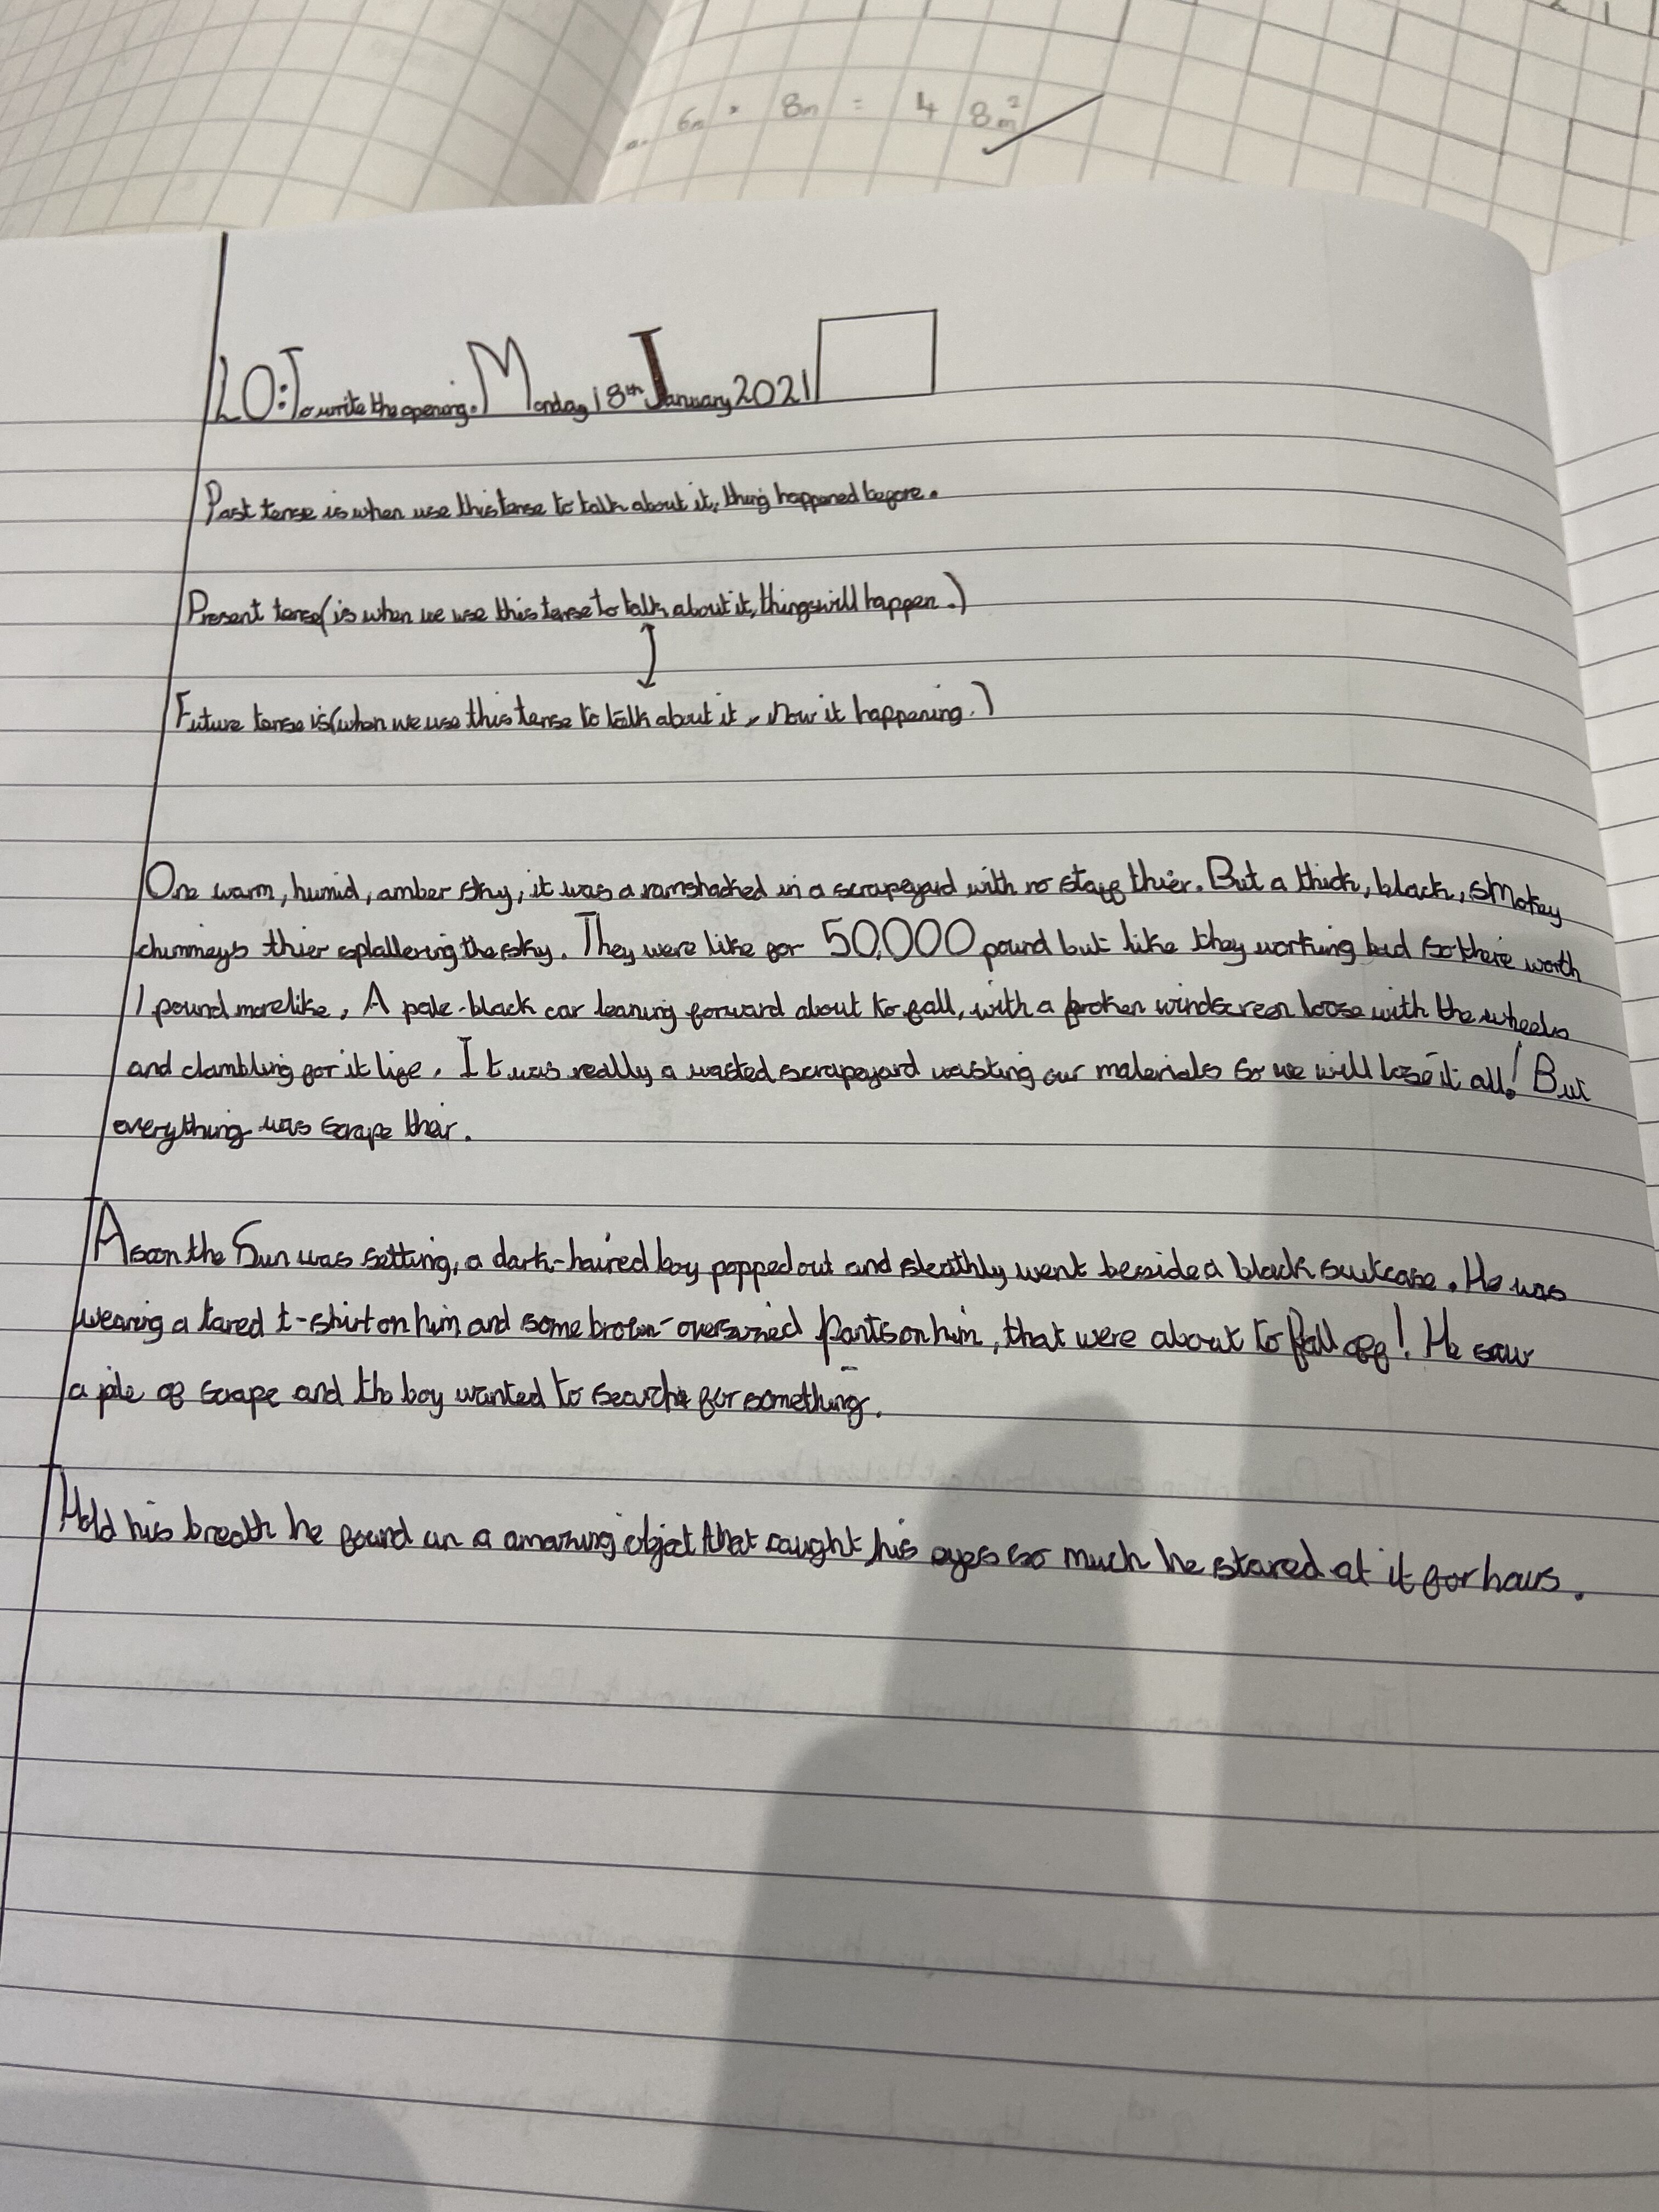 6m × 8m = 48m²
LO: To write the opening. Monday 18th January 2021
Past tense is when use this tense to talk about it, thing happened before.
Present tense (is when we use this tense to talk about it, things will happen.)
Future tense is (when we use this tense to talk about it, Now it happening.)
One warm, humid, amber sky, it was a ramshacked in a scrapeyard with no staff thier. But a thick, black, smokey
chimmeys thier splattering the sky. They were like for 50,000 pound but like they working bad so there worth
1 pound more like. A pale-black car leaning forward about to fall, with a broken windscreen loose with the wheels
and clambling for it life. It was really a wasted scrapeyard wasting our materials so we will lose it all! But
everything was scrape their.
A soon the Sun was setting, a dark-haired boy popped out and sleathly went beside a black suitcase. He was
wearing a tared t-shirt on him and some brown-oversized pants on him, that were about to fall off! He saw
a pile of scrape and the boy wanted to search for something.
Hold his breath he found an a amazing object that caught his eyes so much he stared at it for hours.